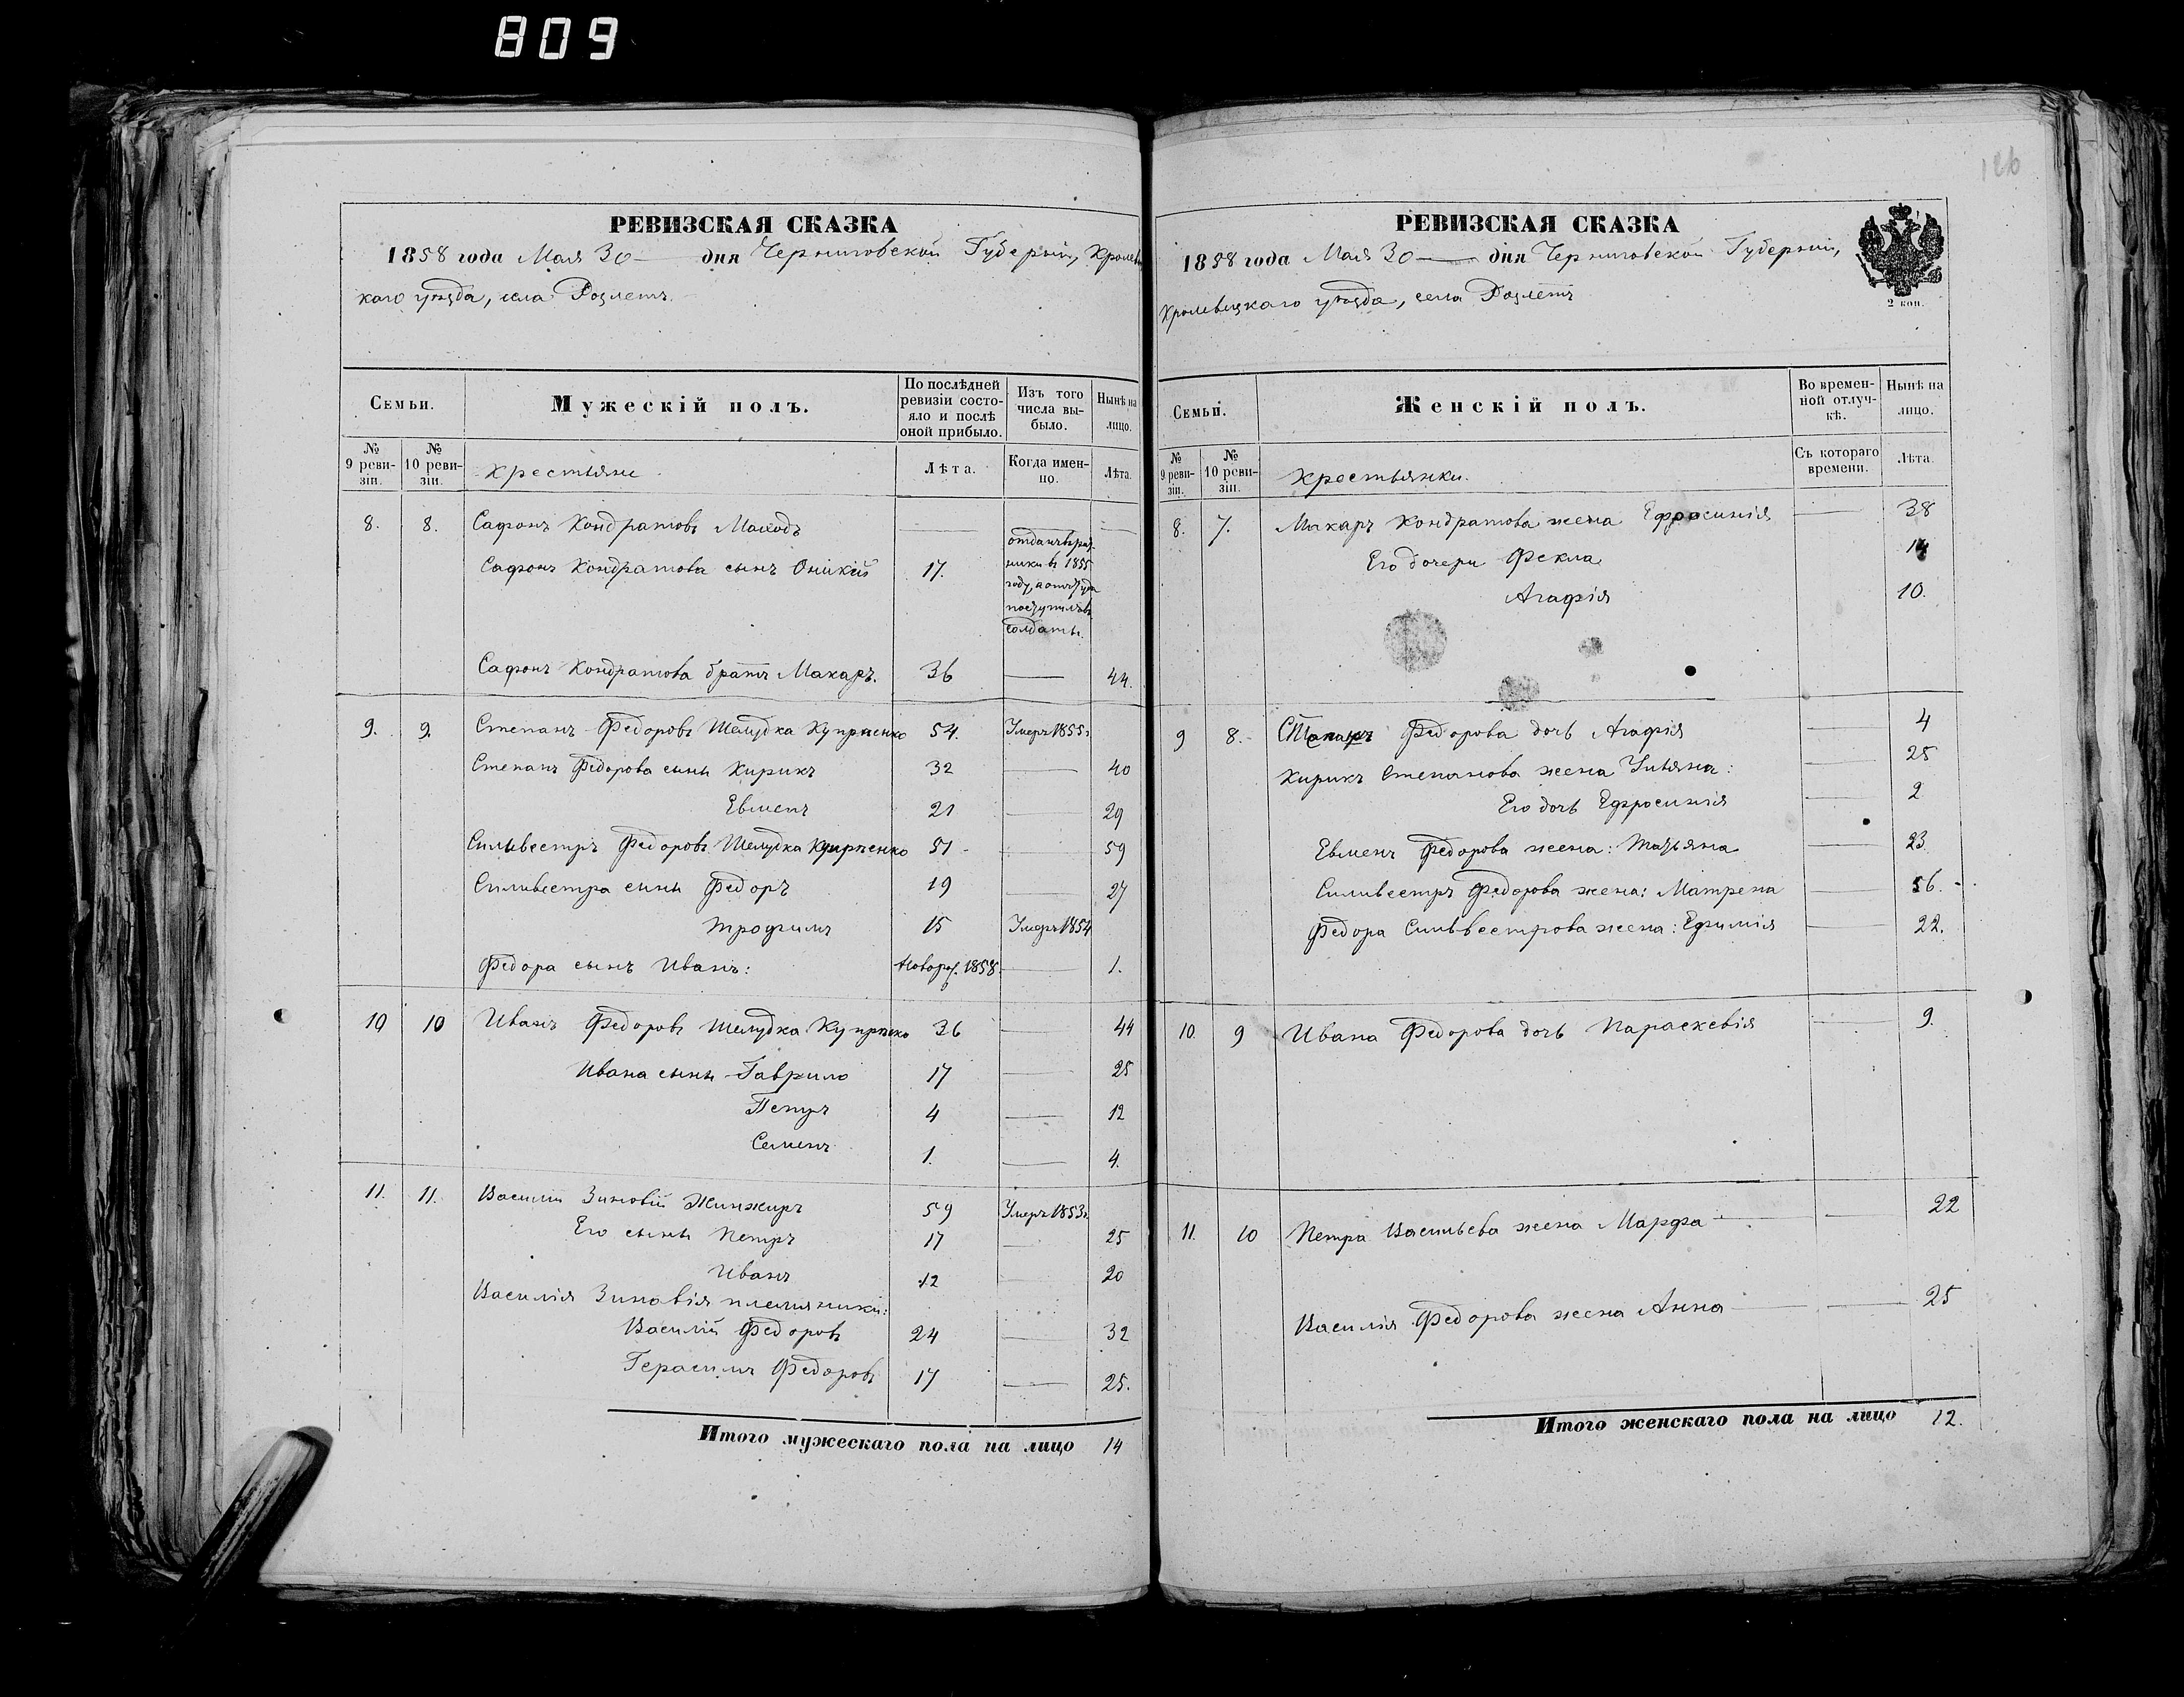 809
126
РЕВИЗСКАЯ СКАЗКА
1858 года Мая 30 дня Черниговской Губернии, Кролевец
каго уезда, села Рацлетъ
Семьи.
Мужескій полъ.
По послѣдней ревизіи состояло и послѣ оной прибыло.
Изъ того числа выбыло.
Нынѣ на лицо.
№ 9 ревизіи.
№ 10 ревизіи.
Крестьяне
Лѣта.
Когда именно.
Лѣта.
8. 8. Сафонъ Кондратовъ
отданъ
Сафонъ Кондратова сынъ Оникій 17. ники въ 1855
году, а оттуда
поступилъ въ
солдаты.
Сафонъ Кондратова братъ Макаръ. 36 44.
9. 9. Степанъ Федоровъ Шелудка Купріенко 54. Умеръ 1855 г
Степанъ Федорова сыны Кирикъ 32 40
Евменъ 21 29
Сильвестръ Федоровъ Шелудка Купріенко 51 59
Сильвестра сыны Федоръ 19 27
Трофимъ 15 Умеръ 1854
Федора сынъ Иванъ: Новорж. 1858 1.
10 10 Иванъ Федоровъ Шелудка Купріенко 36 44
Ивана сыны Гаврило 17 25
Петръ 4 12
Семенъ 1. 4.
11. 11. Василій Зиновій Жинжиръ 59 Умеръ 1853 г.
Его сыны Петръ 17 25
Иванъ 12 20
Василія Зиновія племянники:
Василій Федоровъ 24 32
Герасимъ Федоровъ 17 25.
Итого мужескаго пола на лицо 14
РЕВИЗСКАЯ СКАЗКА
1858 года Мая 30 дня Черниговской Губерніи,
Кролевецкаго уезда, села Рацлетъ
2 коп.
Семьи.
Женскій полъ.
Во временной отлучкѣ.
Нынѣ на лицо.
№ 9 ревизіи.
№ 10 ревизіи.
Крестьянки.
Съ котораго времени.
Лѣта.
8. 7. Макаръ Кондратова жена Ефросинія 38
Его дочери Фекла 14
Агафія 10.
9 8. Степанъ Федорова дочь Агафія 4
Кирикъ Степанова жена Ульяна: 25
Его дочь Ефросинія 2
Евменъ Федорова жена: Татьяна 23
Сильвестръ Федорова жена: Матрена 56.
Федора Сильвестрова жена: Ефимія 22.
10. 9 Ивана Федорова дочь Параскевія 9.
11. 10 Петра Васильева жена Марфа 22
Василія Федорова жена Анна 25
Итого женскаго пола на лицо 12.